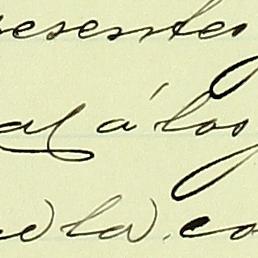 resentes
al á los
da la co